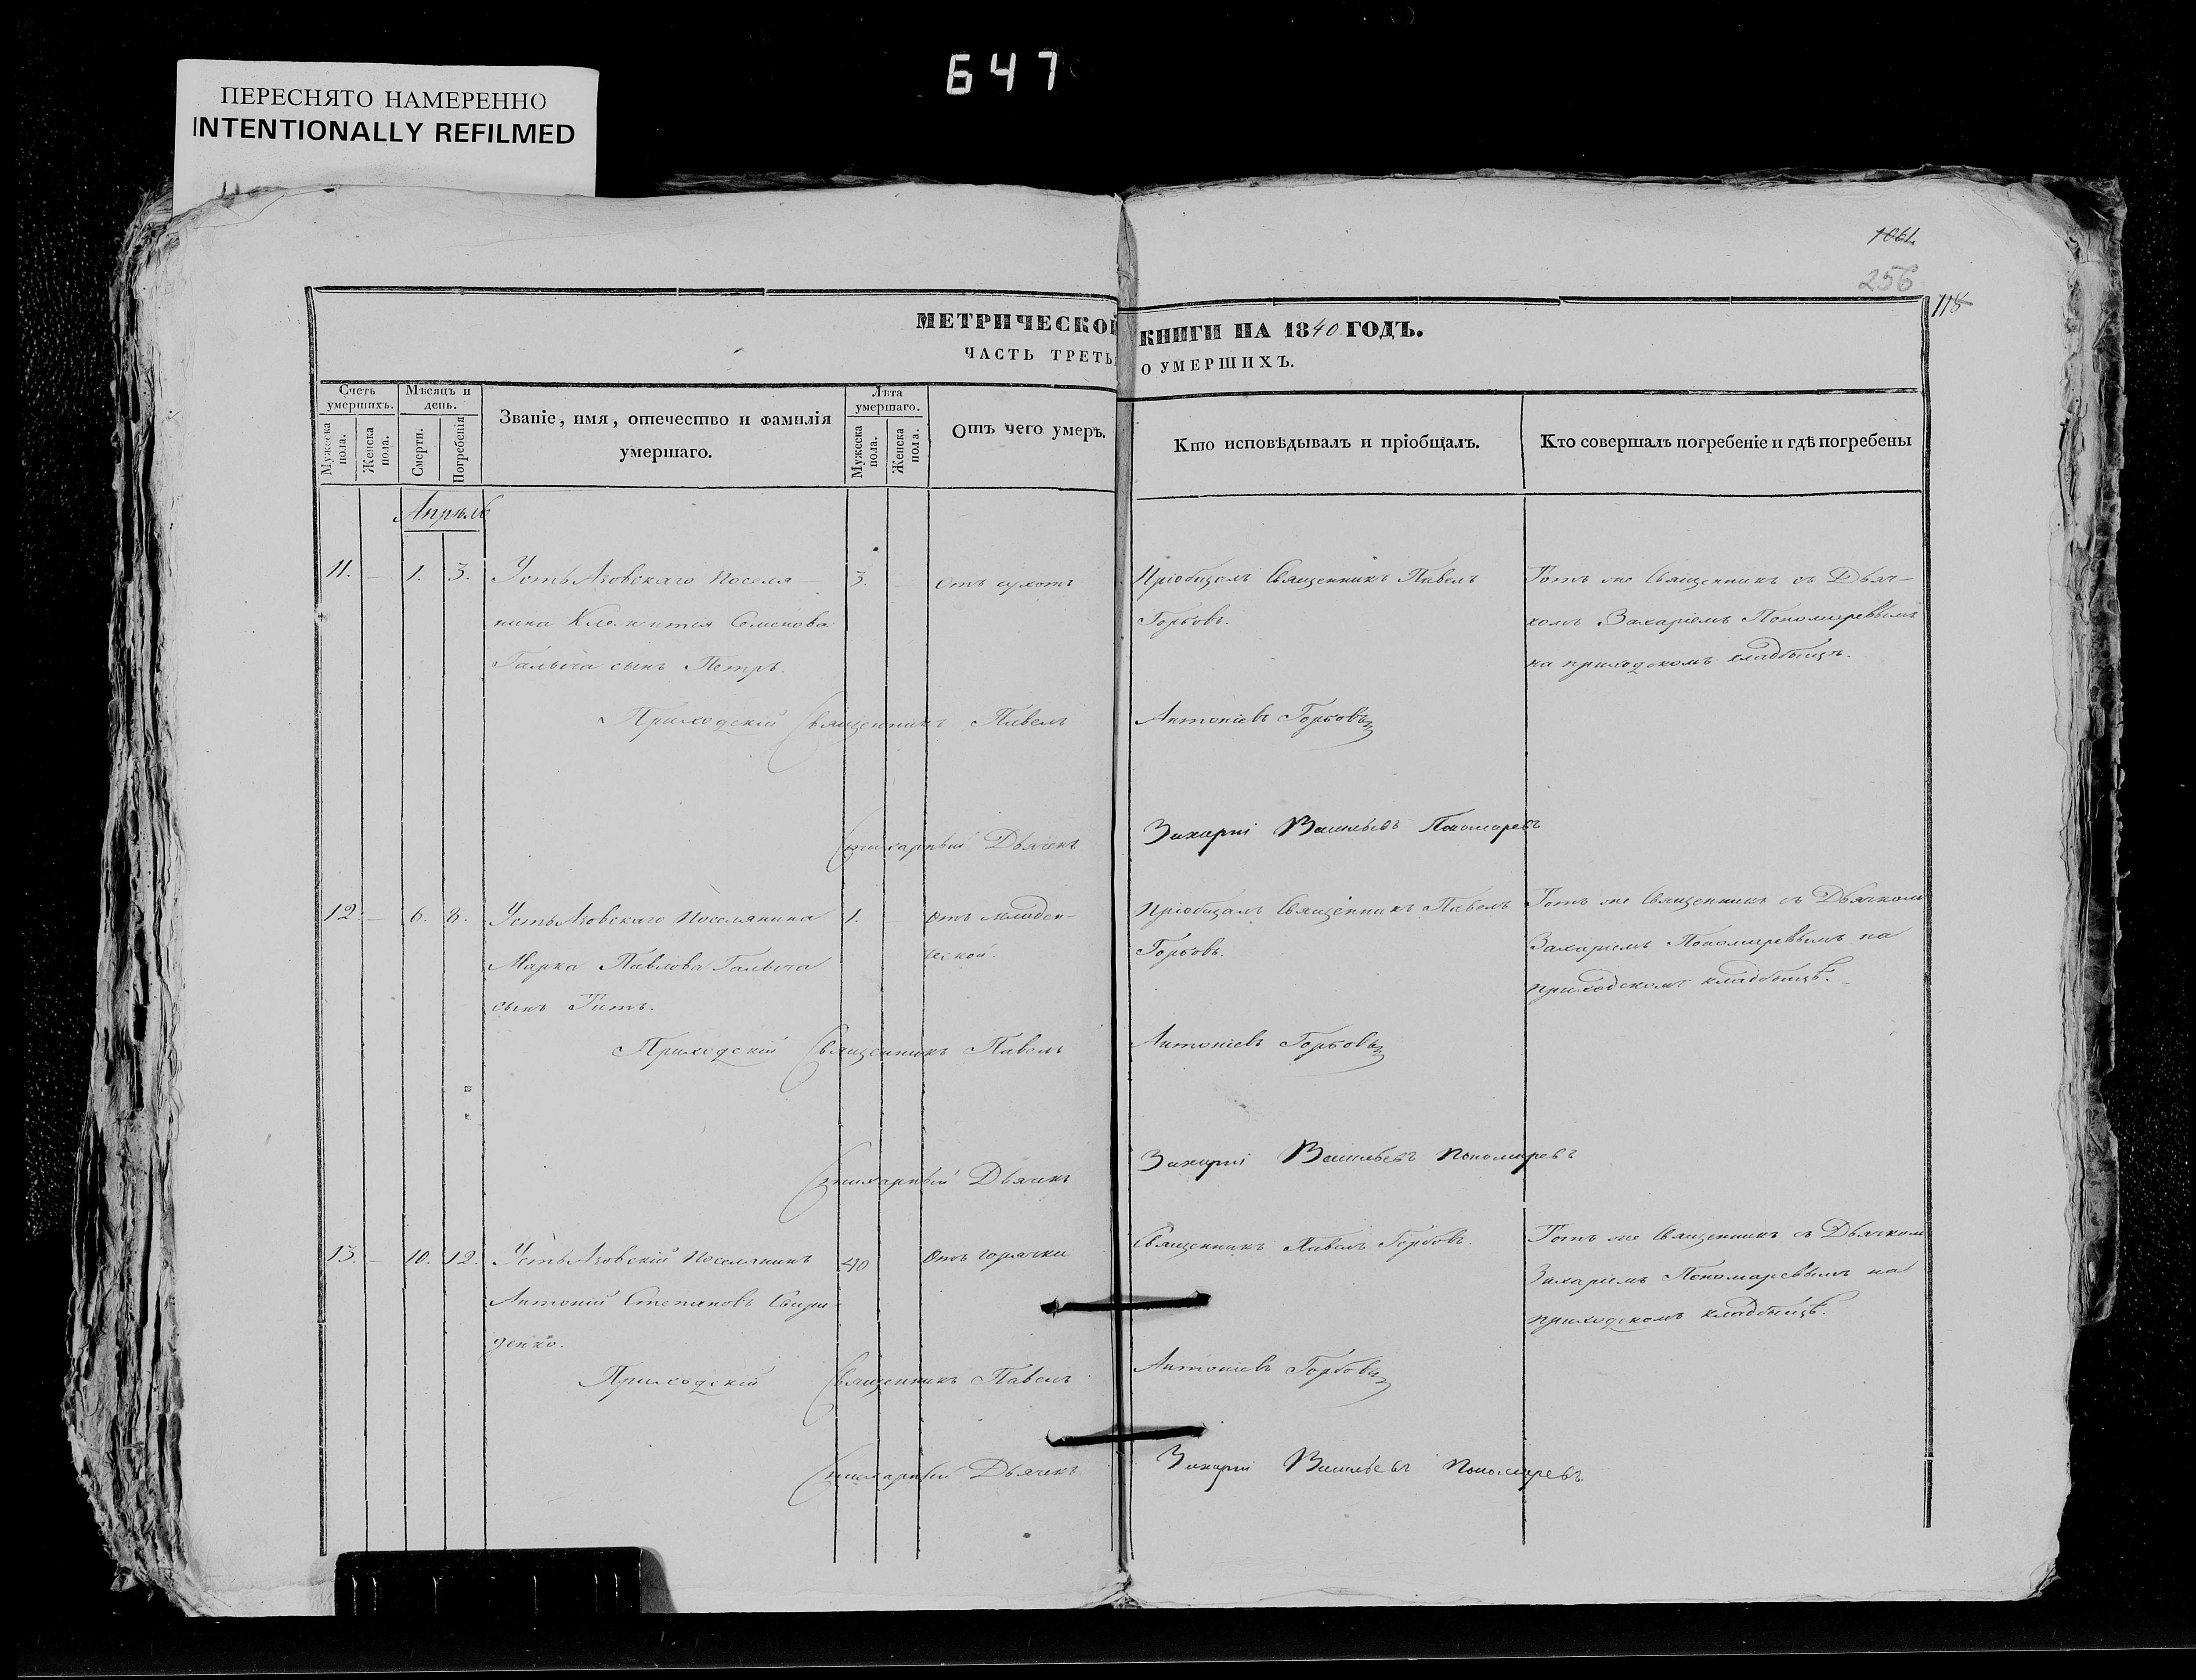 647
ПЕРЕСНЯТО НАМЕРЕННО
INTENTIONALLY REFILMED
1061
256
118
МЕТРИЧЕСКОЙ КНИГИ НА 1840 ГОДЪ.
ЧАСТЬ ТРЕТЬ О УМЕРШИХЪ.
Счетъ умершихъ.
Мужеска пола.
Женска пола.
Мѣсяцъ и день.
Смерти.
Погребенія
Званіе, имя, отечество и фамилія умершаго.
Лѣта умершаго.
Мужеска пола.
Женска пола.
Отъ чего умеръ.
Кто исповѣдывалъ и пріобщалъ.
Кто совершалъ погребеніе и гдѣ погребены
Апрѣль
11. — 1. 3. Усть Азовскаго Поселя- 3. — отъ сухотъ Пріобщалъ Священникъ Павелъ Тотъ же Священникъ съ Дьяч-
нина Климентія Семенова Горбовъ. комъ Захаріемъ Пономаревымъ
Галыча сынъ Петръ. на приходскомъ кладбищѣ.
Приходскій Священникъ Павелъ Антоніевъ Горбовъ
Стихарный Дьячекъ Захарій Васильевъ Пономаревъ
12. — 6. 8. Усть Азовскаго Поселянина 1. — отъ младен- Пріобщалъ Священникъ Павелъ Тотъ же Священникъ съ Дьячкомъ
Марка Павлова Галыча ческой. Горбовъ. Захаріемъ Пономаревымъ на
сынъ Титъ. приходскомъ кладбищѣ.
Приходскій Священникъ Павелъ Антоніевъ Горбовъ
Стихарный Дьячекъ Захарій Васильевъ Пономаревъ
13. — 10. 12. Усть Азовскій Поселянинъ 40 отъ горячки Священникъ Павелъ Горбовъ. Тотъ же Священникъ съ Дьячкомъ
Антоній Степановъ Свири- Захаріемъ Пономаревымъ на
денко. приходскомъ кладбищѣ.
Приходскій Священникъ Павелъ Антоніевъ Горбовъ
Стихарный Дьячекъ Захарій Васильевъ Пономаревъ.